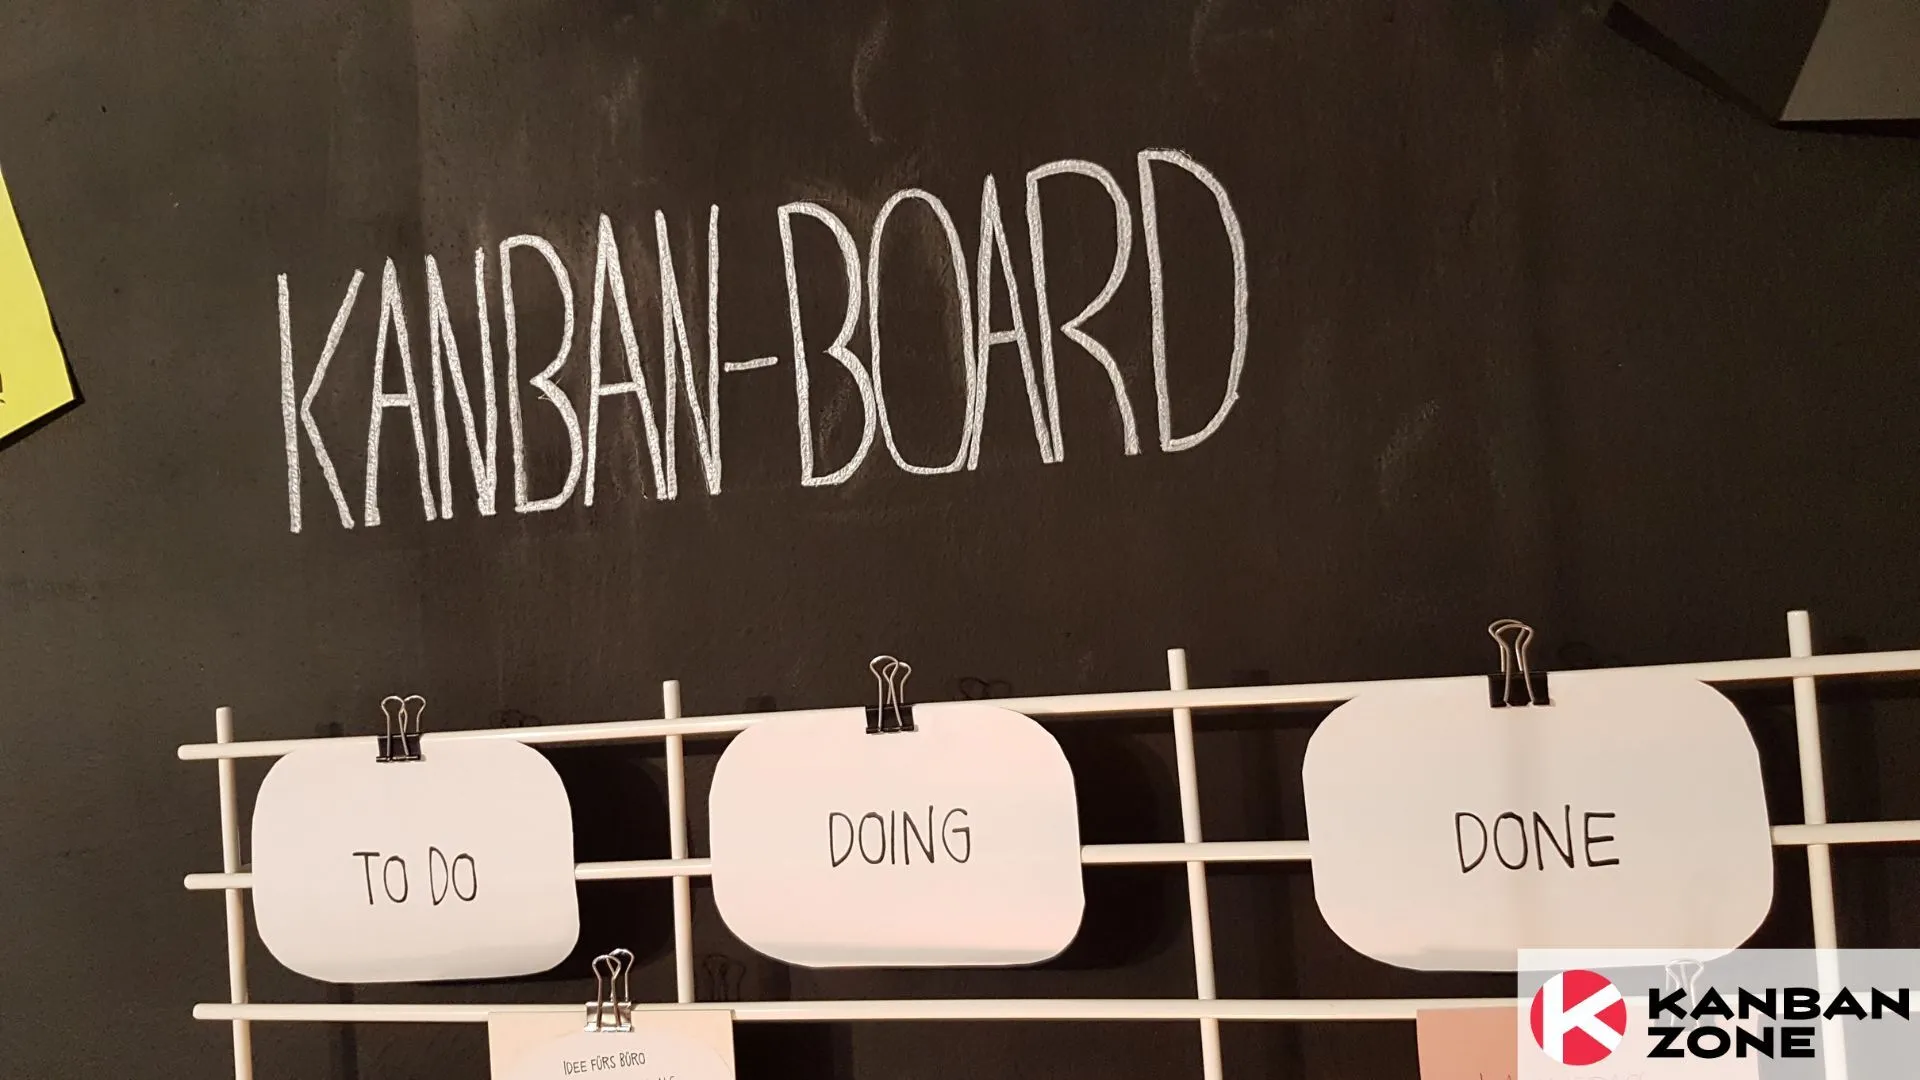 KANBAN-BOARD
TO DO
DOING
DONE
IDEE FÜRS BÜRO
KANBAN
ZONE